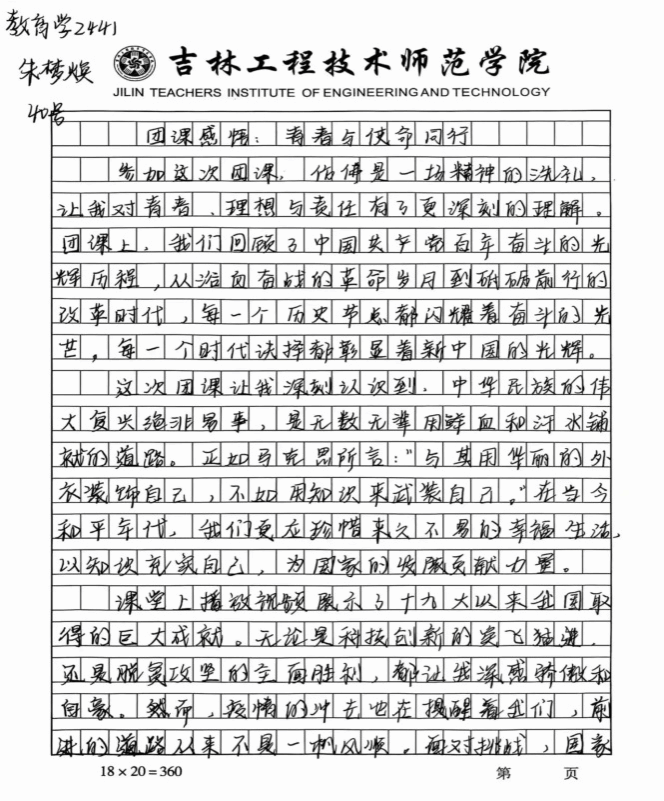 教育学2441
朱梦焕
40号
吉林工程技术师范学院
JILIN TEACHERS INSTITUTE OF ENGINEERING AND TECHNOLOGY
团课感悟：青春与使命同行
参加这次团课，仿佛是一场精神的洗礼，
让我对青春、理想与责任有了更深刻的理解。
团课上，我们回顾了中国共产党百年奋斗的光
辉历程，从浴血奋战的革命岁月到砥砺前行的
改革时代，每一个历史节点都闪耀着奋斗的光
芒，每一个时代抉择都彰显着新中国的光辉。
这次团课让我深刻认识到，中华民族的伟
大复兴绝非易事，是无数先辈用鲜血和汗水铺
就的道路。正如马克思所言："与其用华丽的外
衣装饰自己，不如用知识来武装自己。"在当今
和平年代，我们更应珍惜来之不易的幸福生活，
以知识充实自己，为国家的发展贡献力量。
课堂上播放视频展示了十九大以来我国取
得的巨大成就。无论是科技创新的突飞猛进，
还是脱贫攻坚的全面胜利，都让我深感骄傲和
自豪。然而，疫情的冲击也在提醒着我们，前
进的道路从来不是一帆风顺。面对挑战，国家
18×20=360
第 页